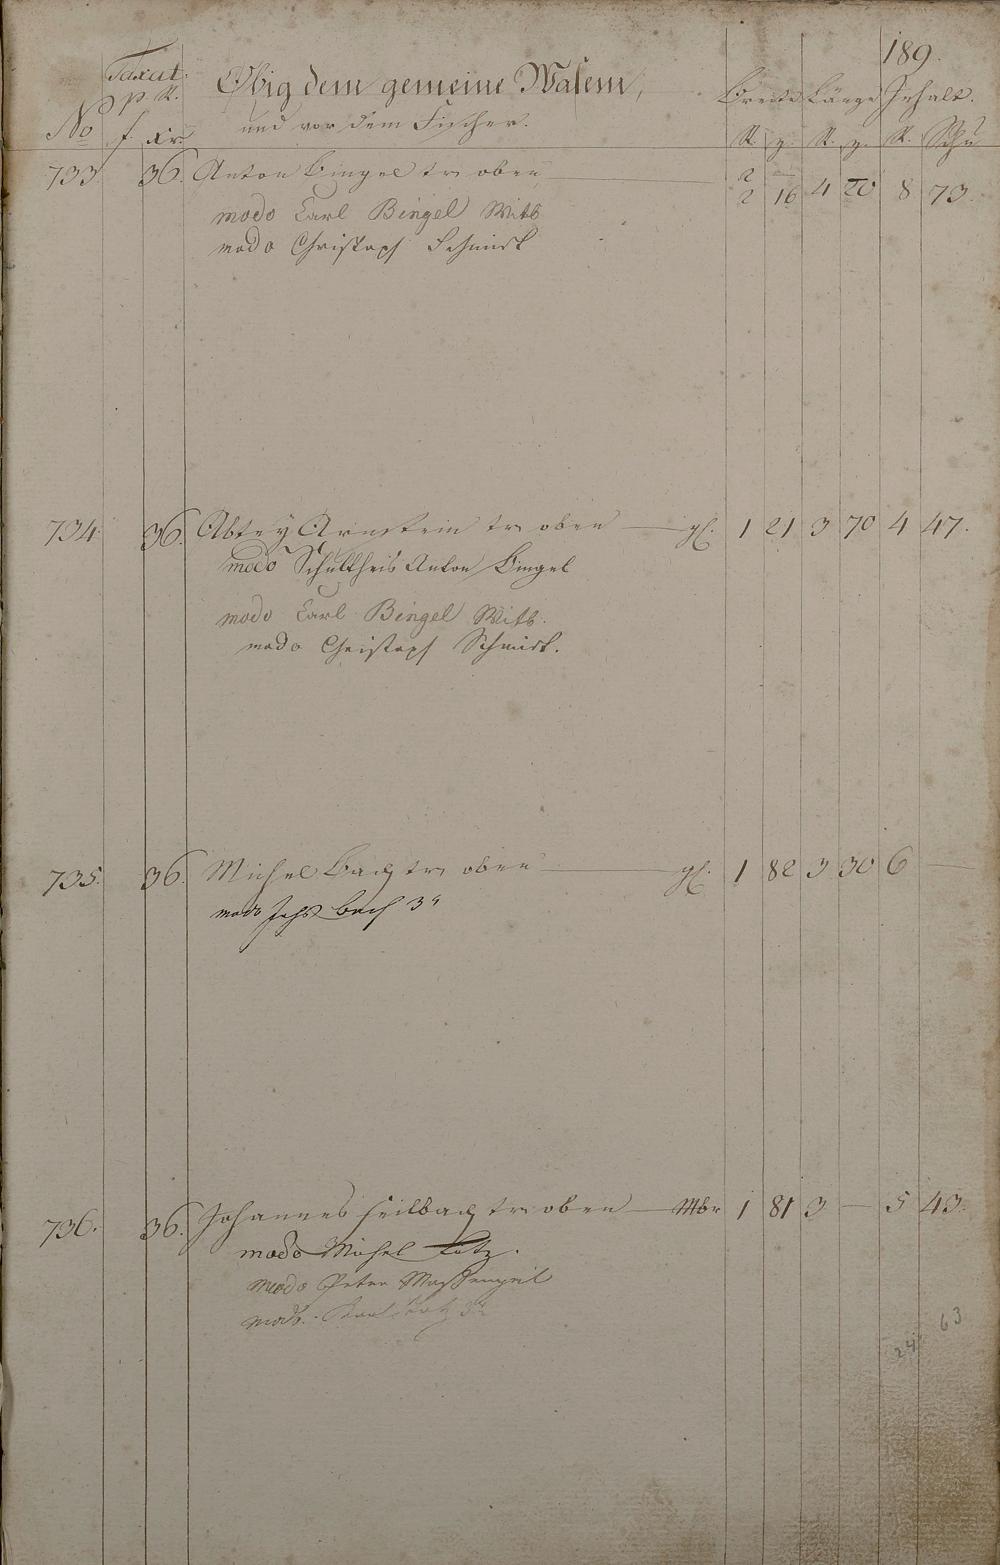 189.
Taxat. Obig dem gemeine Wasem,
p. R. Breite Länge Inhalt.
No f. xr. und vor dem Fischer. R. R. R. Schu
733 36. Anton Bingel tr oben 2
2 16 4 20 8 73.
modo Carl Bingel Witb
modo Christoph Schmidt
734. 36. Abtey Arnstein tr oben gl. 1 21 3 70 4 47.
modo Schultheis Anton Bingel
modo Carl Bingel Witb.
modo Christoph Schmidt.
735. 36. Michel Bach tr oben — gl. 1 82 3 30 6 —
modo Johs Bach 3r
736. 36. Johannes Heilbach tr oben — Mbr 1 81 3 — 5 43.
modo Michel Katz.
modo Peter Massengeil
modo
24 63